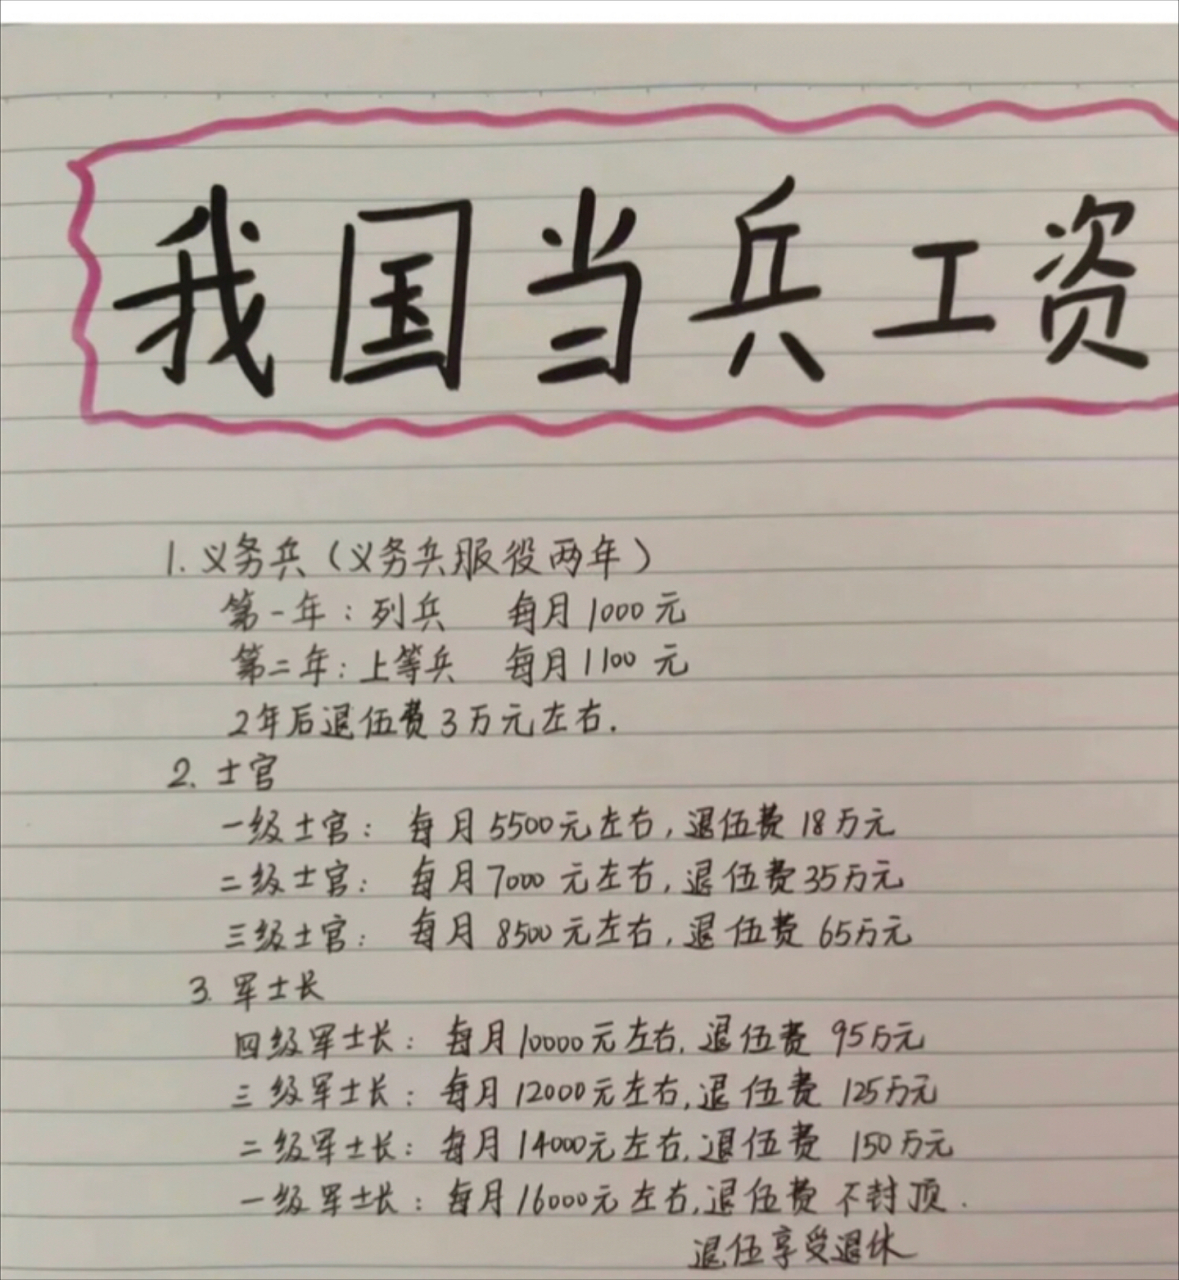 我国当兵工资
1. 义务兵（义务兵服役两年）
第一年：列兵 每月1000元
第二年：上等兵 每月1100元
2年后退伍费3万元左右.
2. 士官
一级士官： 每月5500元左右，退伍费18万元
二级士官： 每月7000元左右，退伍费35万元
三级士官： 每月8500元左右，退伍费65万元
3. 军士长
四级军士长：每月10000元左右，退伍费 95万元
三级军士长：每月12000元左右，退伍费 125万元
二级军士长：每月14000元左右，退伍费 150万元
一级军士长：每月16000元左右，退伍费 不封顶.
退伍享受退休